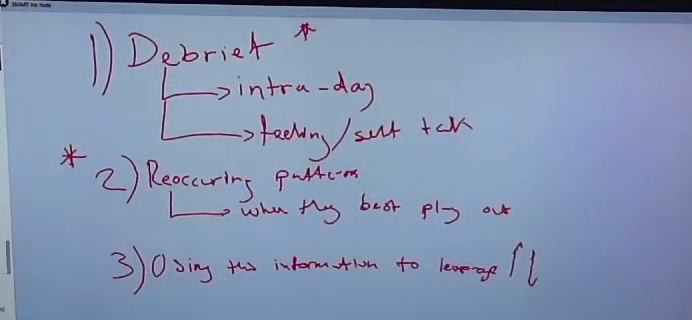 SMART Ink Note
1) Debrief *
intra-day
feeling/self talk
* 2) Reoccuring patterns
when they best play out
3) Using this information to leverage ↑↓